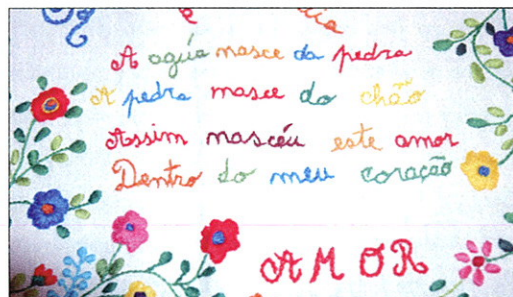 A agúa nasce da pedra
A pedra nasce do chão
Assim nascéu este amor
Dentro do meu coração
AMOR